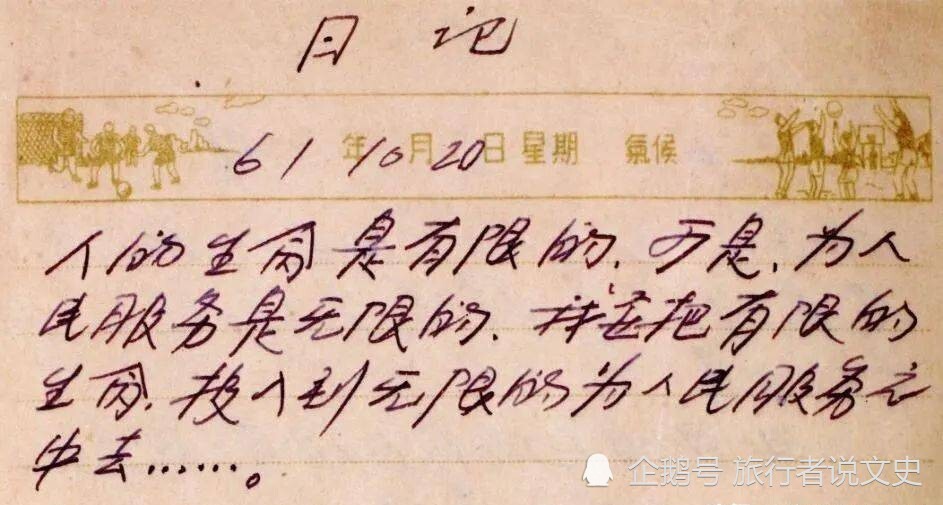 日记
61年10月20日 星期 氣候
人的生命是有限的,可是,为人
民服务是无限的,我要把有限的
生命,投入到无限的为人民服务之
中去……。
企鹅号 旅行者说文史